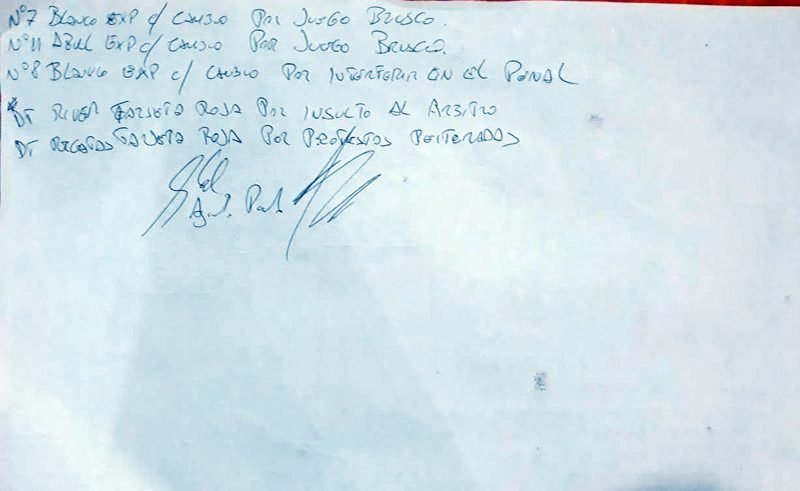 Nº7 Blanco EXP c/ cambio Por Juego Brusco.
Nº11 Azul EXP c/ cambio Por Juego Brusco.
Nº8 Blanco EXP c/ cambio Por Interferir en el Penal
DT River Tarjeta Roja Por Insulto Al Arbitro
DT Tarjeta Roja Por Reiteradas